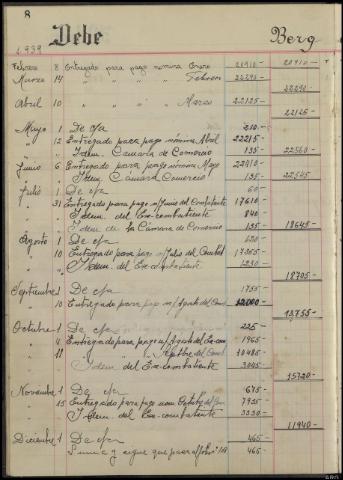 8
1.939
Debe
Berg
Febrero 8 Entregado para pago nómina Enero 20910- 20910-
Marzo 14 " " " " Febrero 22290-
22290-
Abril 10 " " " " Marzo 22125-
22125-
Mayo 1 De c/a 210-
" 12 Entregado para pago nómina Abril 22215-
" Idem. Cámara de Comercio 135- 22560-
Junio 6 Entregado para pago nómina Mayo 22410-
" Idem Cámara Comercio 135- 22545-
Julio 1 De c/a 60-
" 31 Entregado para pago n/ Junio del Combatente 17610-
" Idem. del Ex-combatiente 840-
" Idem de la Cámara de Comercio 135- 18645-
Agosto 1 De c/a
" 10 Entregado para pago n/ Julio del
" Idem del Ex-combatiente 1230-
18705-
Septiembre 1 De c/a 1755-
" 10 Entregado para pago n/ Agosto del 12000-
13755-
Octubre 1 De c/a 225-
" 4 Entregado para pago n/ Agosto del Ex-com 1965-
" 11 " " " " Septbre del 10485-
" Idem del Ex-combatiente 3045-
15720-
Noviembre 1 De c/a 675-
" 15 Entregado para pago nom Octubre del 7935-
" Idem del Ex-combatiente 3330-
11940-
Diciembre 1 De c/a 465-
Suma y sigue que pasa al folio 465-